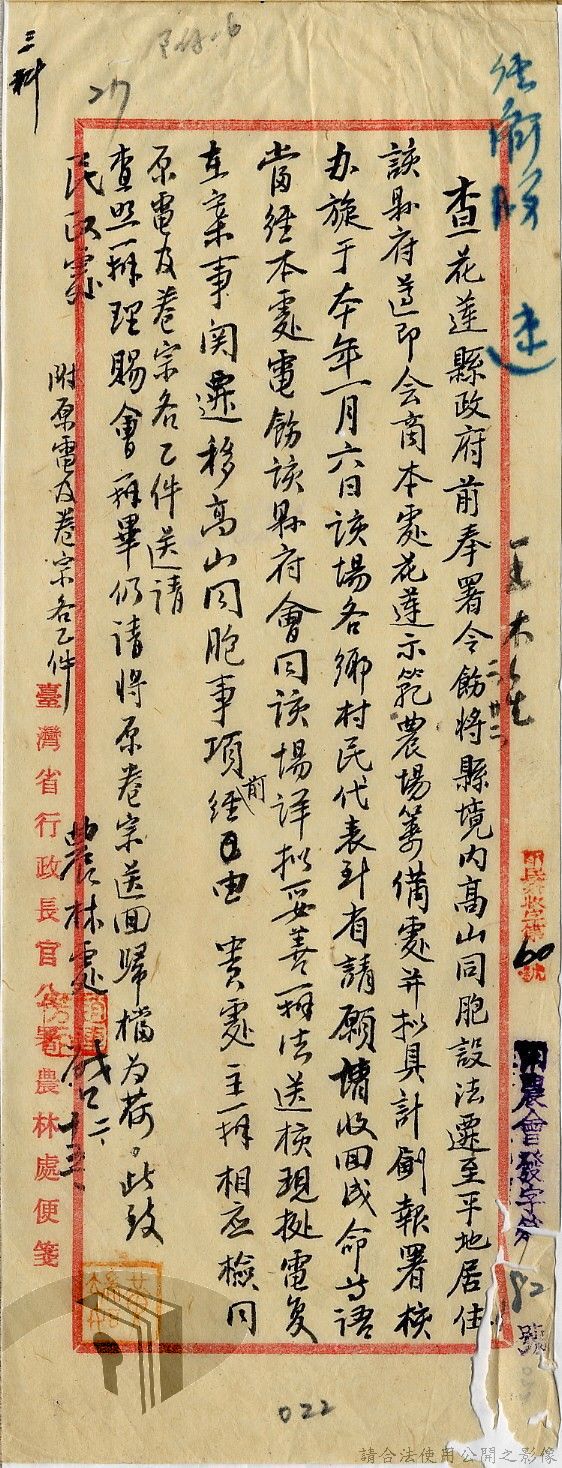 速
查花蓮縣政府前奉署令飭將縣境內高山同胞設法遷至平地居住
該縣府遵即会商本處花蓮示範農場籌備處并拟具計劃報署核
办旋于本年一月六日該場各鄉村民代表到省請願請收回成命等語
當經本處電飭該縣府會同該場詳拟妥善办法送核現據電复
在案事関遷移高山同胞事項前經由 貴處主办相应檢同
原電及卷宗各乙件送請
查照办理賜會办畢仍請將原卷宗送回歸檔为荷。此致
民政處
附原電及卷宗各乙件
農林處
二、十五、
臺灣省行政長官公署農林處便箋
三科
217
60
號
農會發字第
82
號
022
請合法使用公開之影像